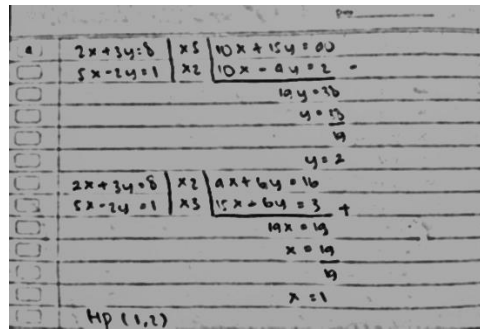 a 2x + 3y = 8 | x5 | 10x + 15y = 40
5x - 2y = 1 | x2 | 10x - 4y = 2 -
19y = 38
y = 38
19
y = 2
2x + 3y = 8 | x2 | 4x + 6y = 16
5x - 2y = 1 | x3 | 15x - 6y = 3 +
19x = 19
x = 19
19
x = 1
Hp (1,2)